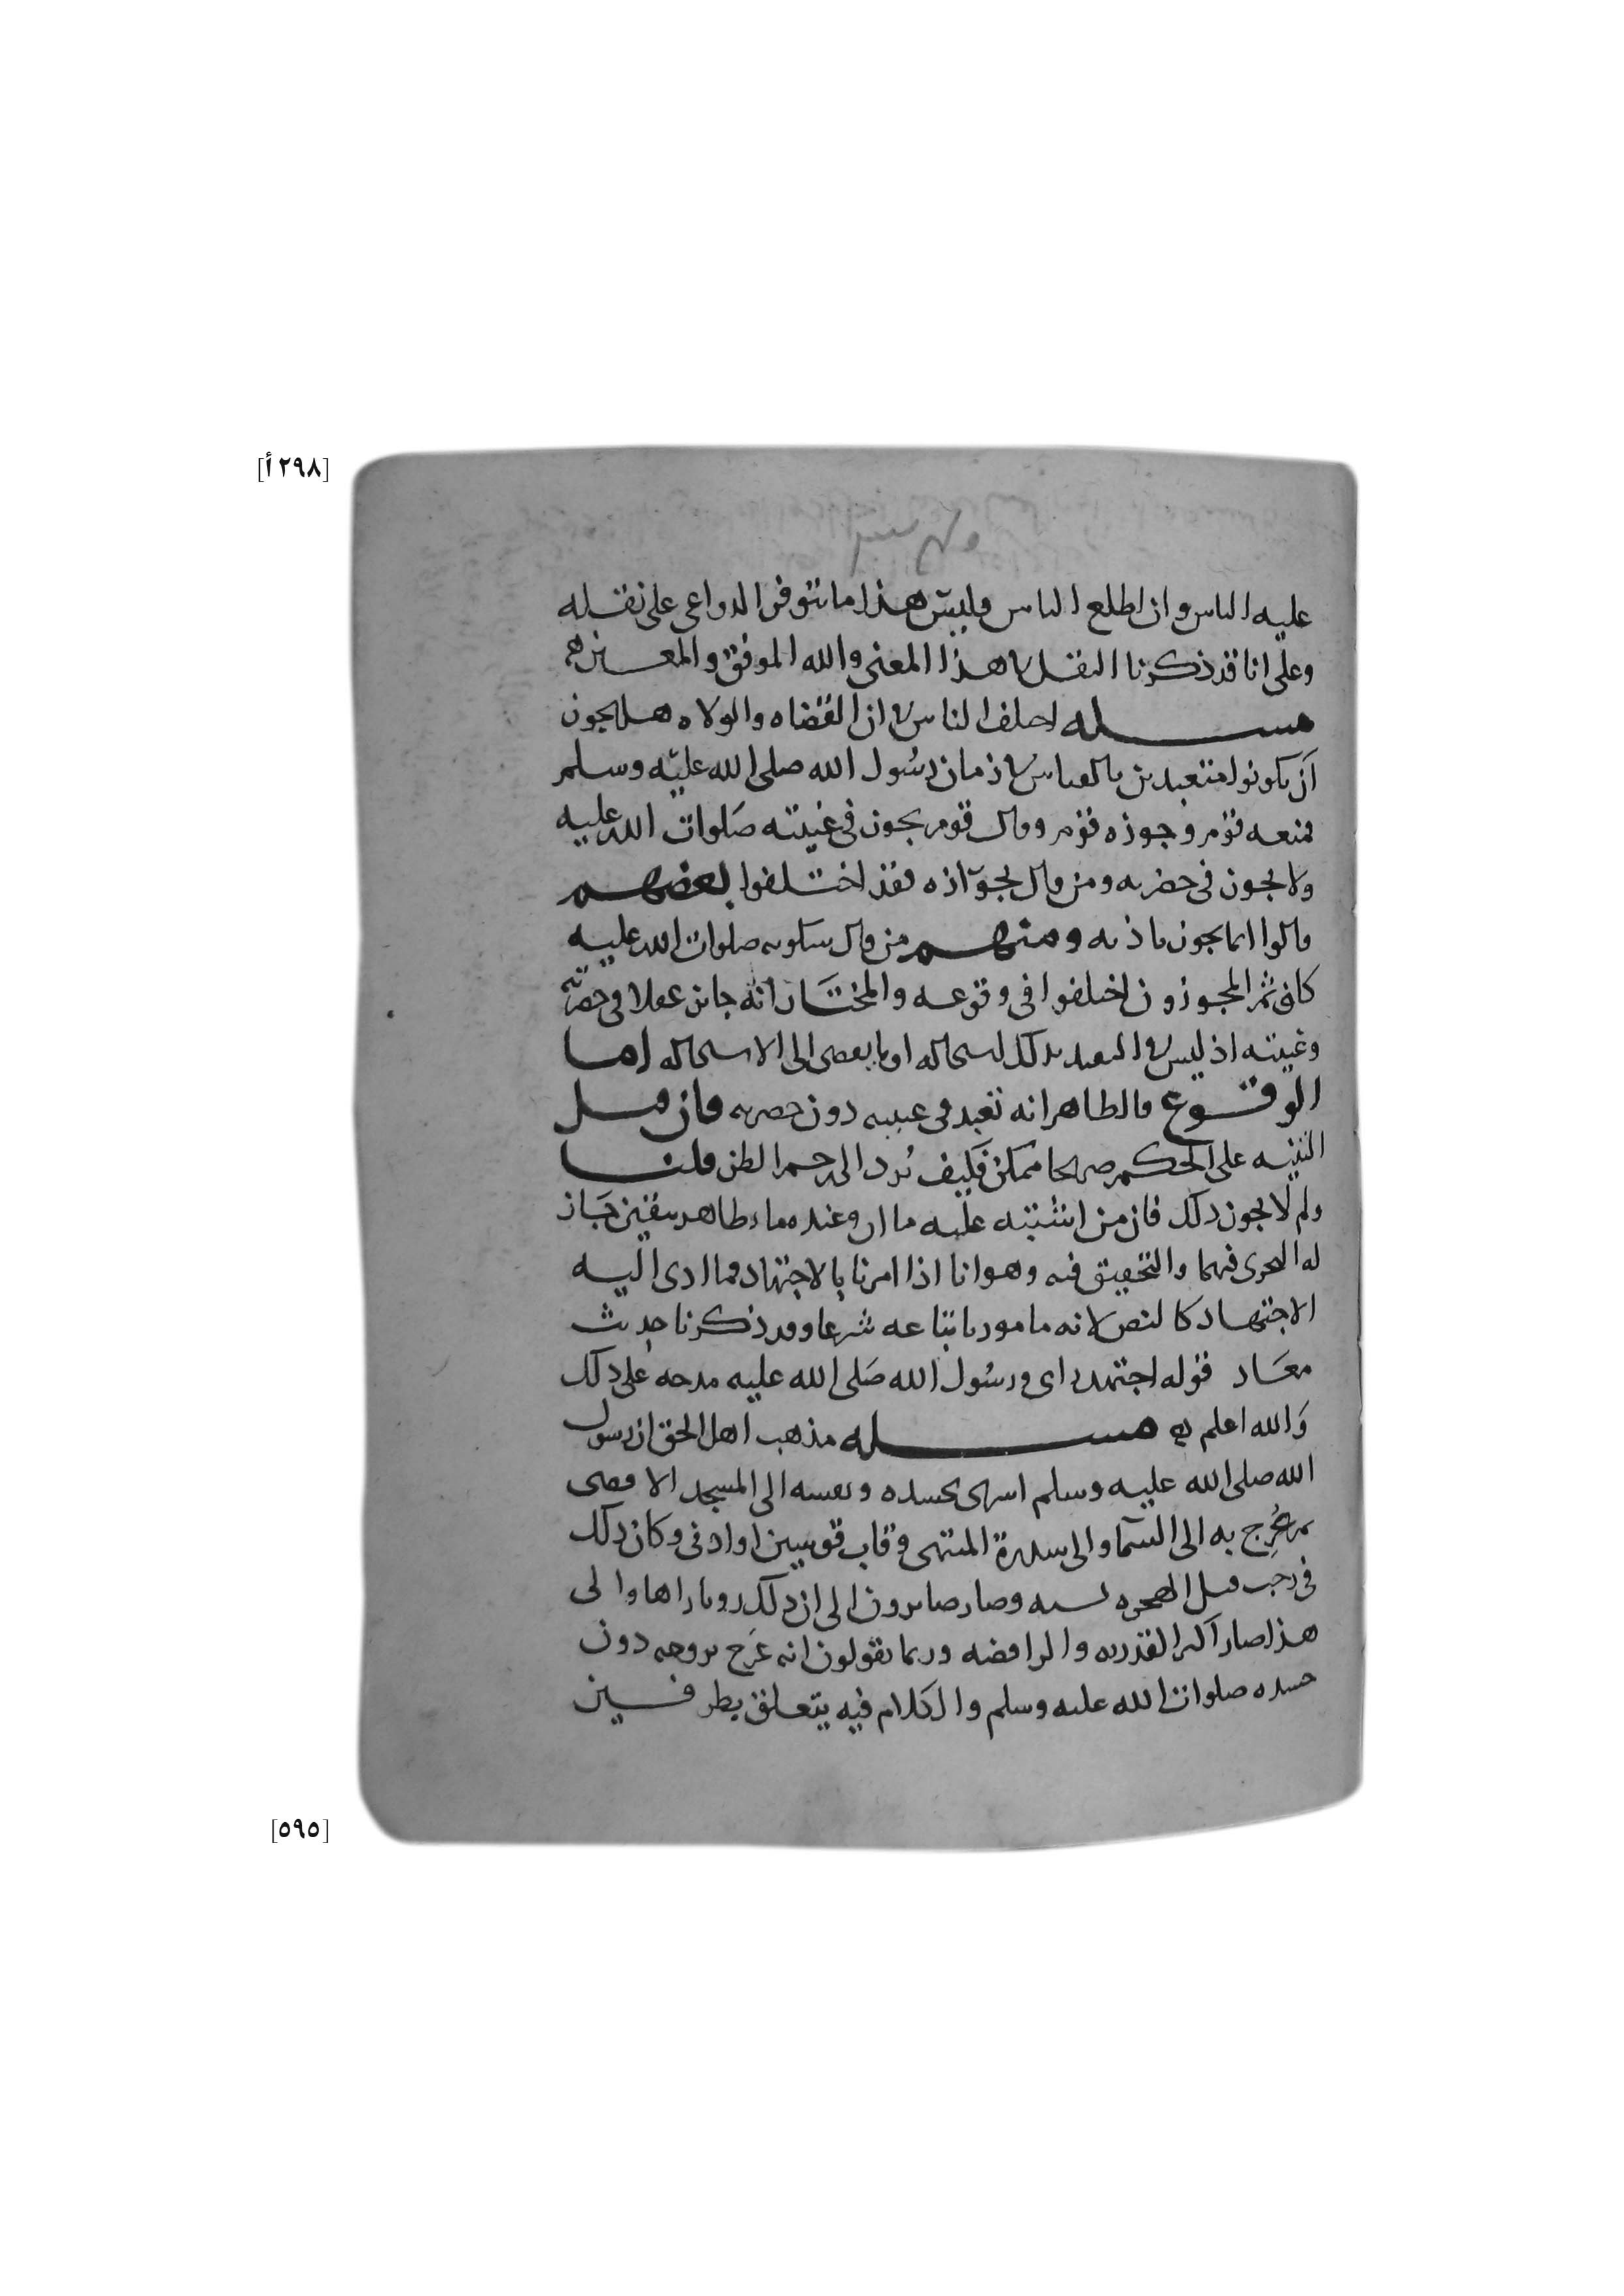 [٢٩٨أ]
عليه الناس وان اطلع الناس وليس هذا ما تتوفر الدواعي على نقله
وعلى انا قد ذكرنا النقل في هذا المعنى والله الموفق والمعين
مسله اختلف الناس في ان القضاه والولاه هل يجوز
ان يكونوا متعبدين بالقياس في زمان رسول الله صلى الله عليه وسلم
فمنعه قوم وجوزه قوم وقال قوم يجوز في غيبته صلوات الله عليه
ولا يجوز في حضرته ومن قال بجوازه فقد اختلفوا بعضهم
قالوا انما يجوز باذنه ومنهم من قال سكوته صلوات الله عليه
كاف ثم المجوزون اختلفوا في وقوعه والمختار انه جائز عقلا في حضرته
وغيبته اذ ليس في التعبد بذلك استحاله او ما يفضى الى الاستحاله اما
الوقوع فالظاهر انه تعبد في غيبته دون حضرته فان قيل
التنبيه على الحكم صريحا ممكن فكيف نرد الى رجم الظن قلنا
ولم لا يجوز ذلك فان من اشتبه عليه ما ان وعنده ماء طاهر بيقين جاز
له التحرى فيهما والتحقيق فيه وهو انا اذا امرنا بالاجتهاد فما ادى اليه
الاجتهاد كالنص لانه مامور باتباعه شرعا وقد ذكرنا حديث
معاد قوله اجتهد راى ورسول الله صلى الله عليه مدحه على ذلك
والله اعلم مسله مذهب اهل الحق ان رسول
الله صلى الله عليه وسلم اسرى بجسده ونفسه الى المسجد الاقصى
ثم عرج به الى السما والى سدرة المنتهى وقاب قوسين او ادنى وكان ذلك
في رجب قبل الهجره لسنه وصار صائرون الى ان ذلك رويا راها والى
هذا صار اكثر القدريه والرافضه وربما يقولون انه عرج بروحه دون
جسده صلوات الله عليه وسلم والكلام فيه يتعلق بطرفين
[٥٩٥]